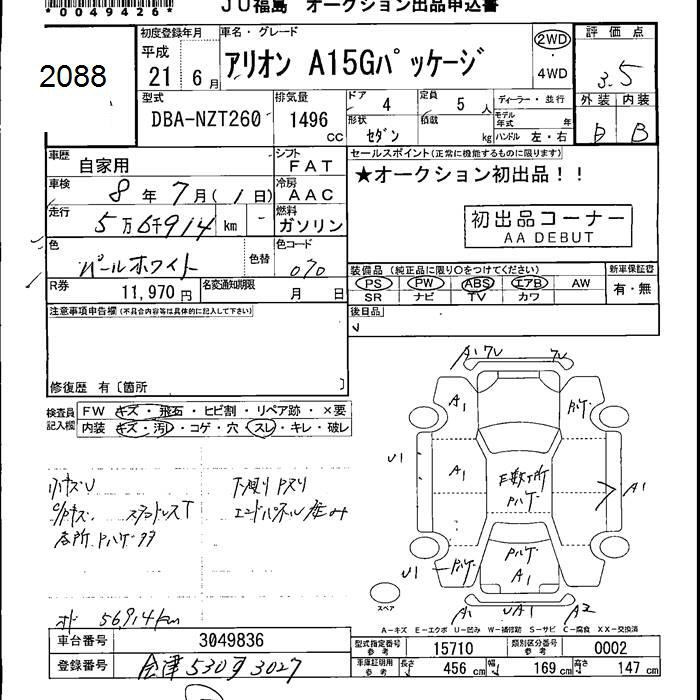 *0049426*
JU福島 オークション出品申込書
2088
初度登録年月
平成
21年 6月
車名・グレード
アリオン A15Gパッケージ
2WD
・
4WD
評価点
3.5
外装 内装
B
型式
DBA-NZT260
排気量
1496
CC
ドア 4
定員 5 人
形状 セダン
積載 kg
ディーラー・並行
モデル年式 年
ハンドル 左・右
車歴
自家用
シフト
FAT
車検
8年 7月( 1日)
冷房
AAC
走行
5万6千914 km
-
燃料
ガソリン
色
パールホワイト
色替
色コード
070
R券
11,970円
名変通知期限
月 日
セールスポイント(正常に機能するものに限ります)
★オークション初出品!!
初出品コーナー
AA DEBUT
装備品(純正品に限り○をつけてください)
新車保証書
PS PW ABS エアB AW
有・無
SR ナビ TV カワ
後日品
注意事項申告欄(不具合内容等は具体的に記入して下さい)
修復歴 有〔箇所 〕
検査員
記入欄
FW キズ・飛石・ヒビ割・リペア跡・×要
内装 キズ・汚・コゲ・穴・スレ・キレ・破レ
小キズU
下廻り Pスリ
スタットレスT
エンドパネル歪み
各所 Pハゲ タタ
オド 56914km
A1 7U 7U
A1
Pハゲ
U1
A1
E数ヶ所
Pハゲ
A1
Pハゲ
A1
U1
Pハゲ
A1 UA1 A2
スペア
A-キズ E-エクボ U-凹み W-補修跡 S-サビ C-腐食 XX-交換済
車台番号
3049836
登録番号
会津530す3027
型式指定番号
参考
15710
類別区分番号
参考
0002
車庫証明用
参考
長さ 456 cm
幅 169 cm
高さ 147 cm